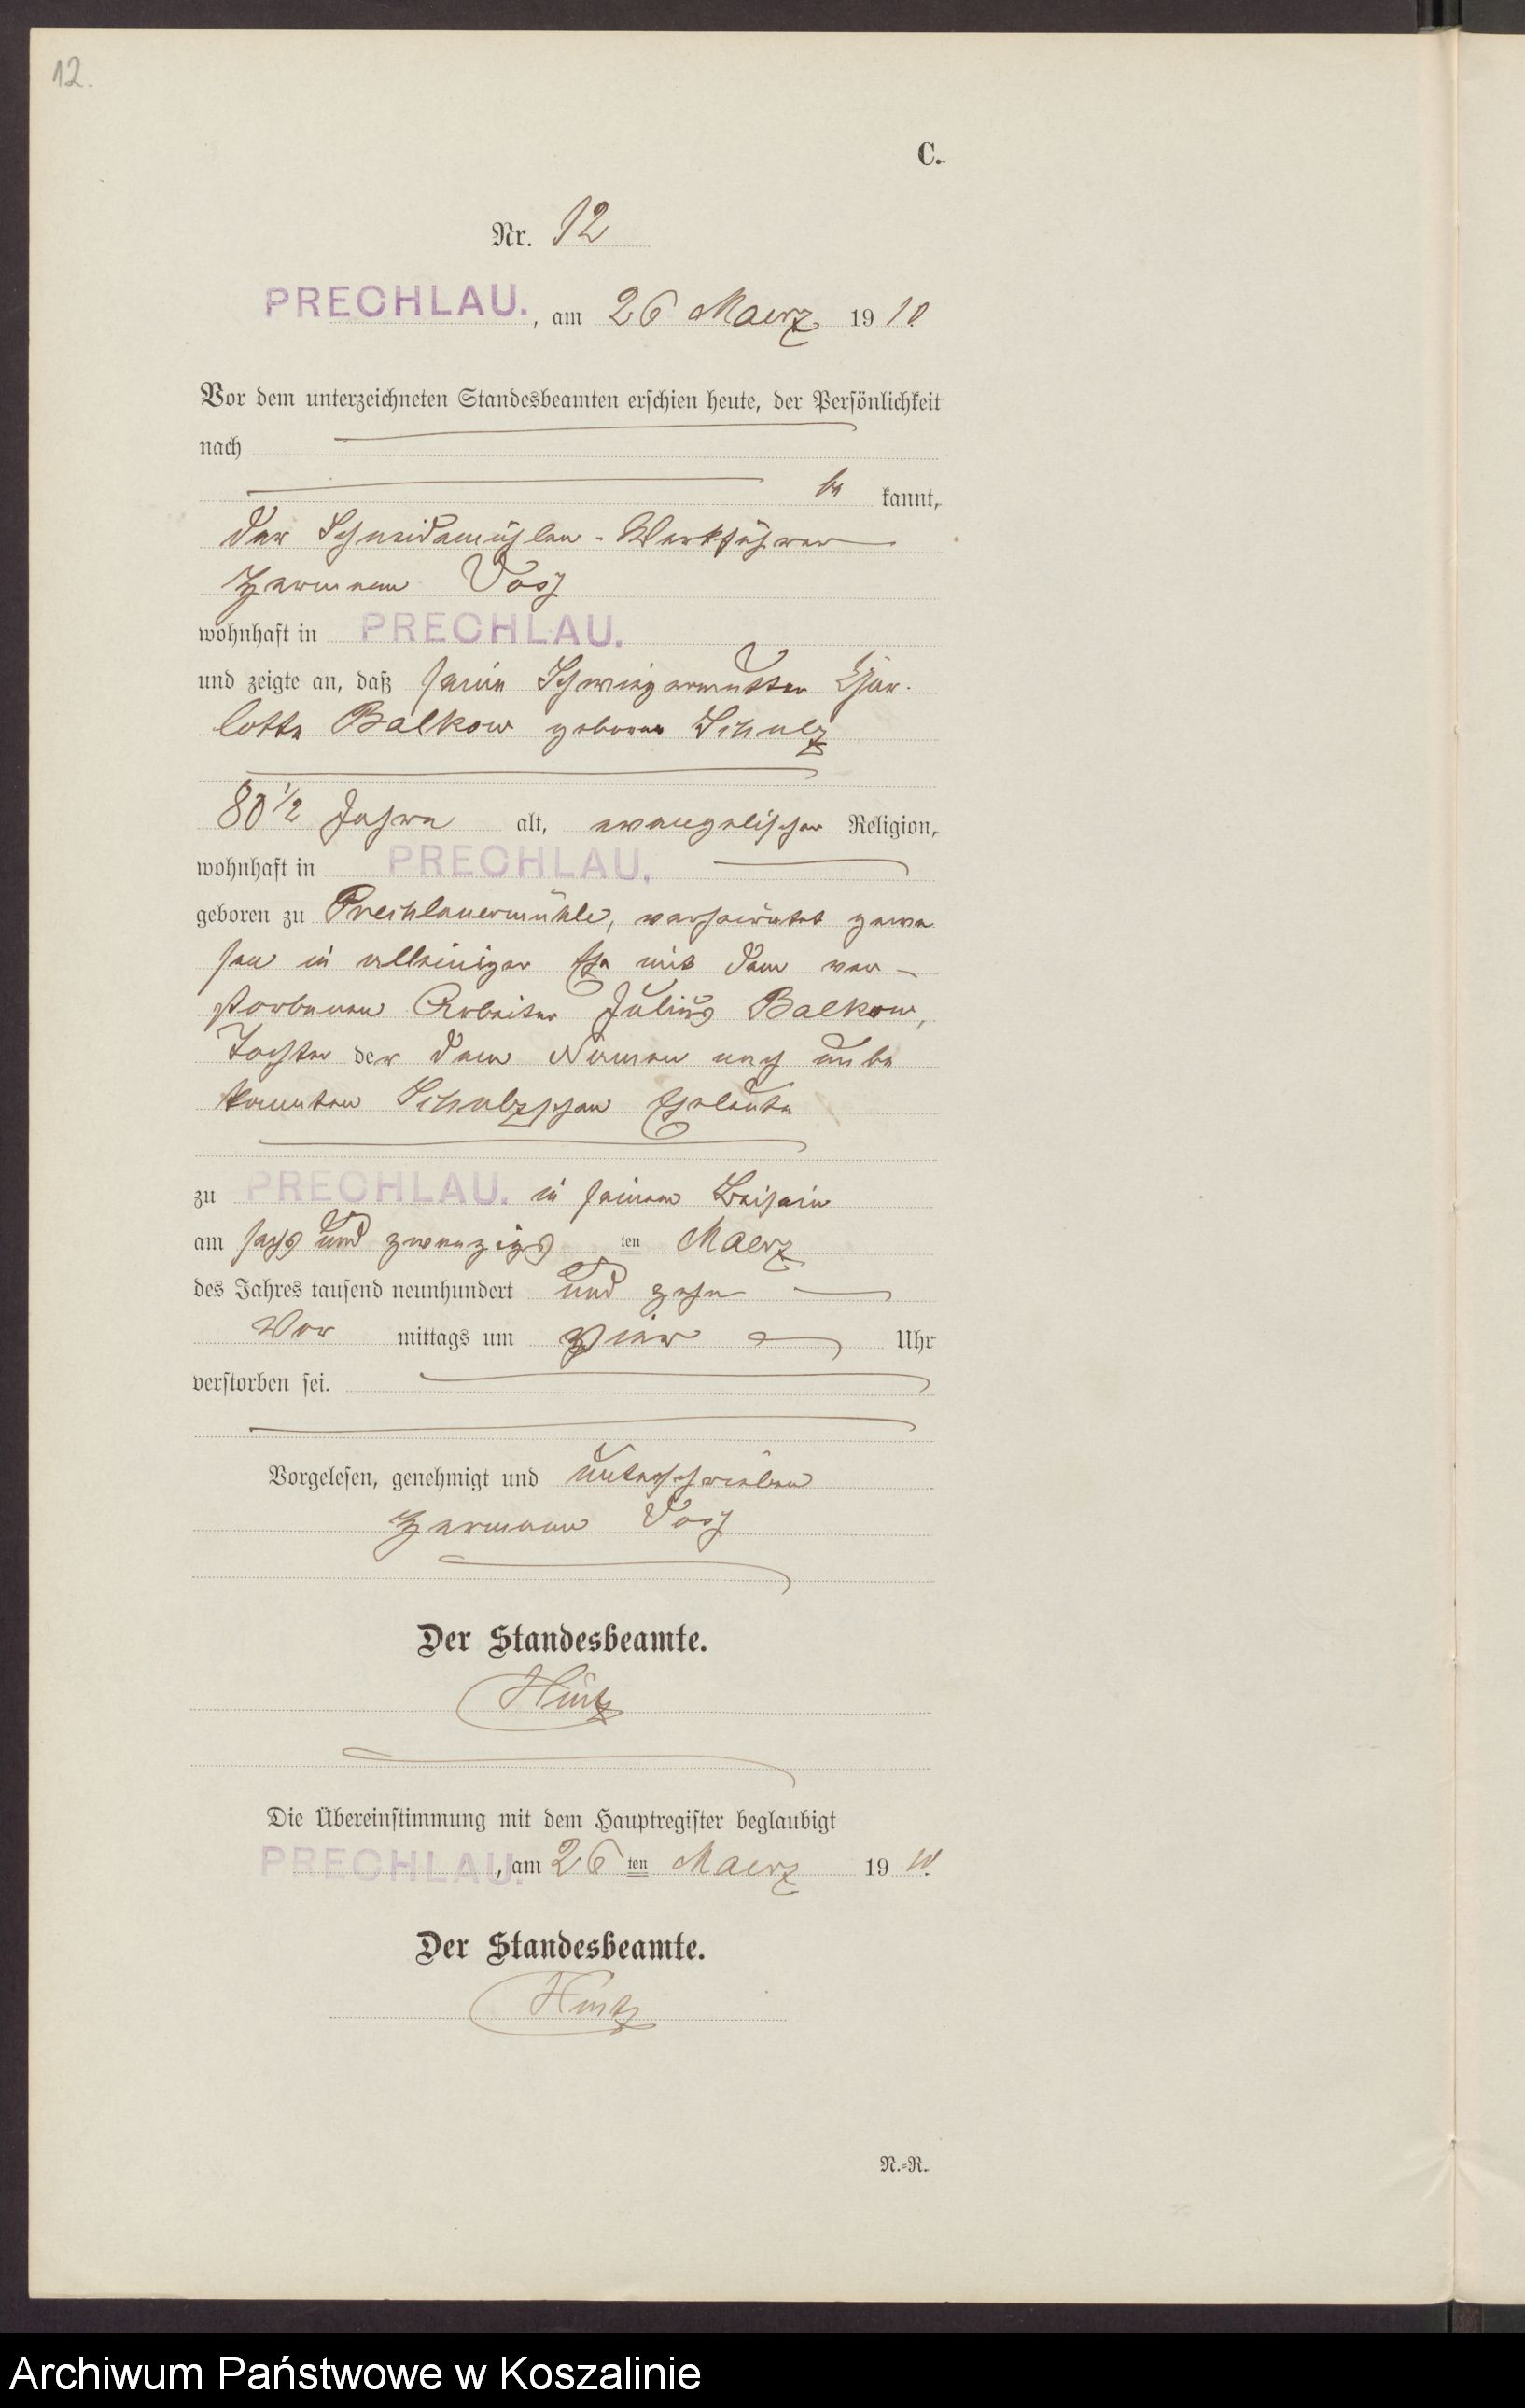 12.
C.
Nr. 12
PRECHLAU. , am 26 Maerz 1910.
Vor dem unterzeichneten Standesbeamten erschien heute, der Persönlichkeit
nach
be kannt,
der Schneidemühlen-Werkführer
Hermann Vosz
wohnhaft in PRECHLAU.
und zeigte an, daß seine Schwiegermutter Char-
lotte Balkow geborne Schulz
80 1/2 Jahre alt, evangelischer Religion,
wohnhaft in PRECHLAU.
geboren zu Prechlauermühle, verheiratet gewe
sen in alleiniger Ehe mit dem ver-
storbenen Arbeiter Julius Balkow,
Tochter der dem Namen nach unbe
kannten Schulzschen Eheleute
zu PRECHLAU. in seinem Beisein
am sechs und zwanzigs ten Maerz
des Jahres tausend neunhundert und zehn
Vor mittags um vier Uhr
verstorben sei.
Vorgelesen, genehmigt und unterschrieben
Hermann Vosz
Der Standesbeamte.
Hintz
Die Übereinstimmung mit dem Hauptregister beglaubigt
PRECHLAU. , am 26 ten Maerz 1910.
Der Standesbeamte.
Hintz
N.-R.
Archiwum Państwowe w Koszalinie